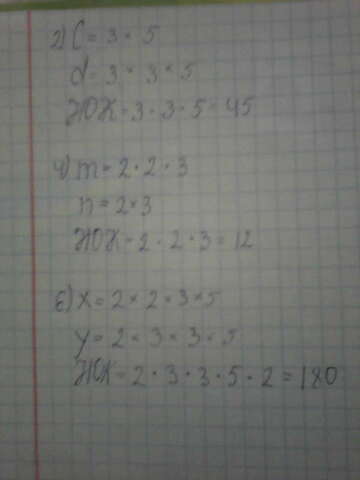 2) C = 3 · 5
d = 3 · 3 · 5
НОК = 3 · 3 · 5 = 45
4) m = 2 · 2 · 3
n = 2 · 3
НОК = 2 · 2 · 3 = 12
6) x = 2 · 2 · 3 · 5
y = 2 · 3 · 3 · 5
НОК = 2 · 3 · 3 · 5 · 2 = 180